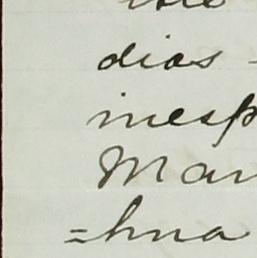 dias -
inesp
Man
=hna